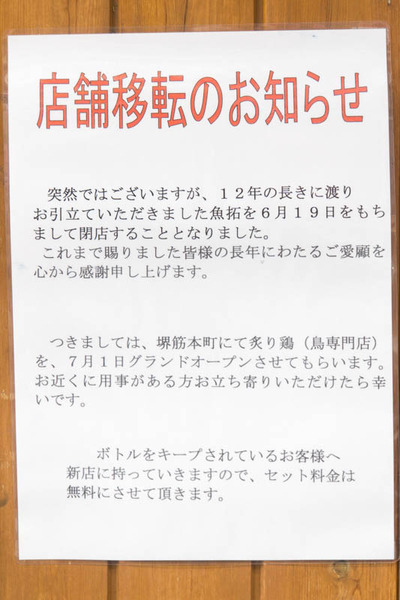 店舗移転のお知らせ
突然ではございますが、１２年の長きに渡り
お引立ていただきました魚拓を６月１９日をもち
まして閉店することとなりました。
これまで賜りました皆様の長年にわたるご愛顧を
心から感謝申し上げます。
つきましては、堺筋本町にて炙り鶏（鳥専門店）
を、７月１日グランドオープンさせてもらいます。
お近くに用事がある方お立ち寄りいただけたら幸
いです。
ボトルをキープされているお客様へ
新店に持っていきますので、セット料金は
無料にさせて頂きます。